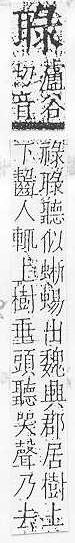 䎑
蘆谷
切音
祿䎑聽似蜥蜴出魏興郡居樹上
下齧人輒上樹垂頭聽哭聲乃去